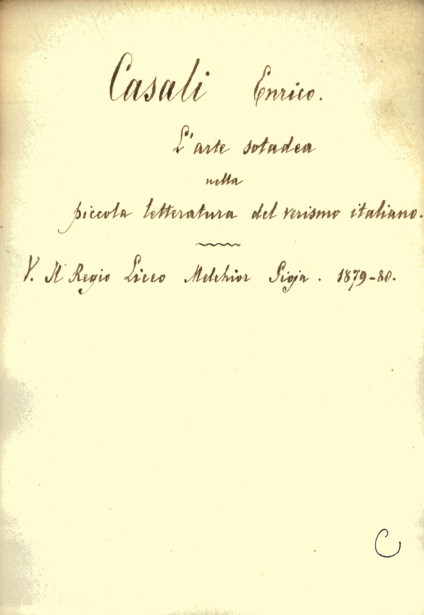 Casali Enrico.
L'arte sotadea
nella
piccola letteratura del verismo italiano.
V. Il Regio Liceo Melchior Gioja. 1879-80.
C